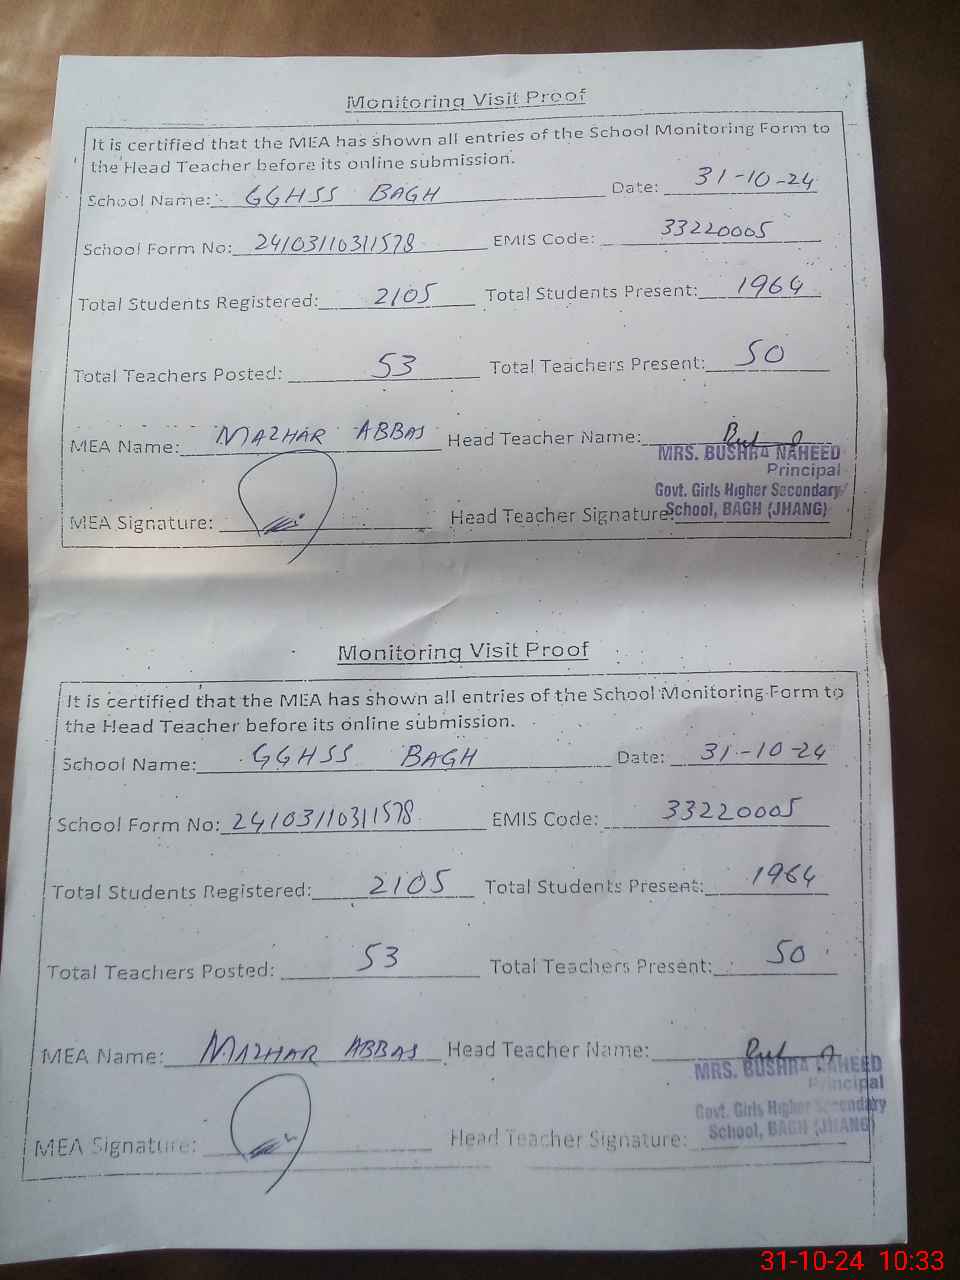 Monitoring Visit Proof
It is certified that the MEA has shown all entries of the School Monitoring Form to
the Head Teacher before its online submission.
School Name: GGHSS BAGH Date: 31-10-24
School Form No: 24103110311578 EMIS Code: 33220005
Total Students Registered: 2105 Total Students Present: 1964
Total Teachers Posted: 53 Total Teachers Present: 50
MEA Name: MAZHAR ABBAS Head Teacher Name:
MRS. BUSHRA NAHEED
Principal
Govt. Girls Higher Secondary
School, BAGH (JHANG)
MEA Signature: Head Teacher Signature:
Monitoring Visit Proof
It is certified that the MEA has shown all entries of the School Monitoring Form to
the Head Teacher before its online submission.
School Name: GGHSS BAGH Date: 31-10-24
School Form No: 24103110311578 EMIS Code: 33220005
Total Students Registered: 2105 Total Students Present: 1964
Total Teachers Posted: 53 Total Teachers Present: 50
MEA Name: MAZHAR ABBAS Head Teacher Name:
MRS. BUSHRA NAHEED
Principal
Govt. Girls Higher Secondary
School, BAGH (JHANG)
MEA Signature: Head Teacher Signature:
31-10-24 10:33